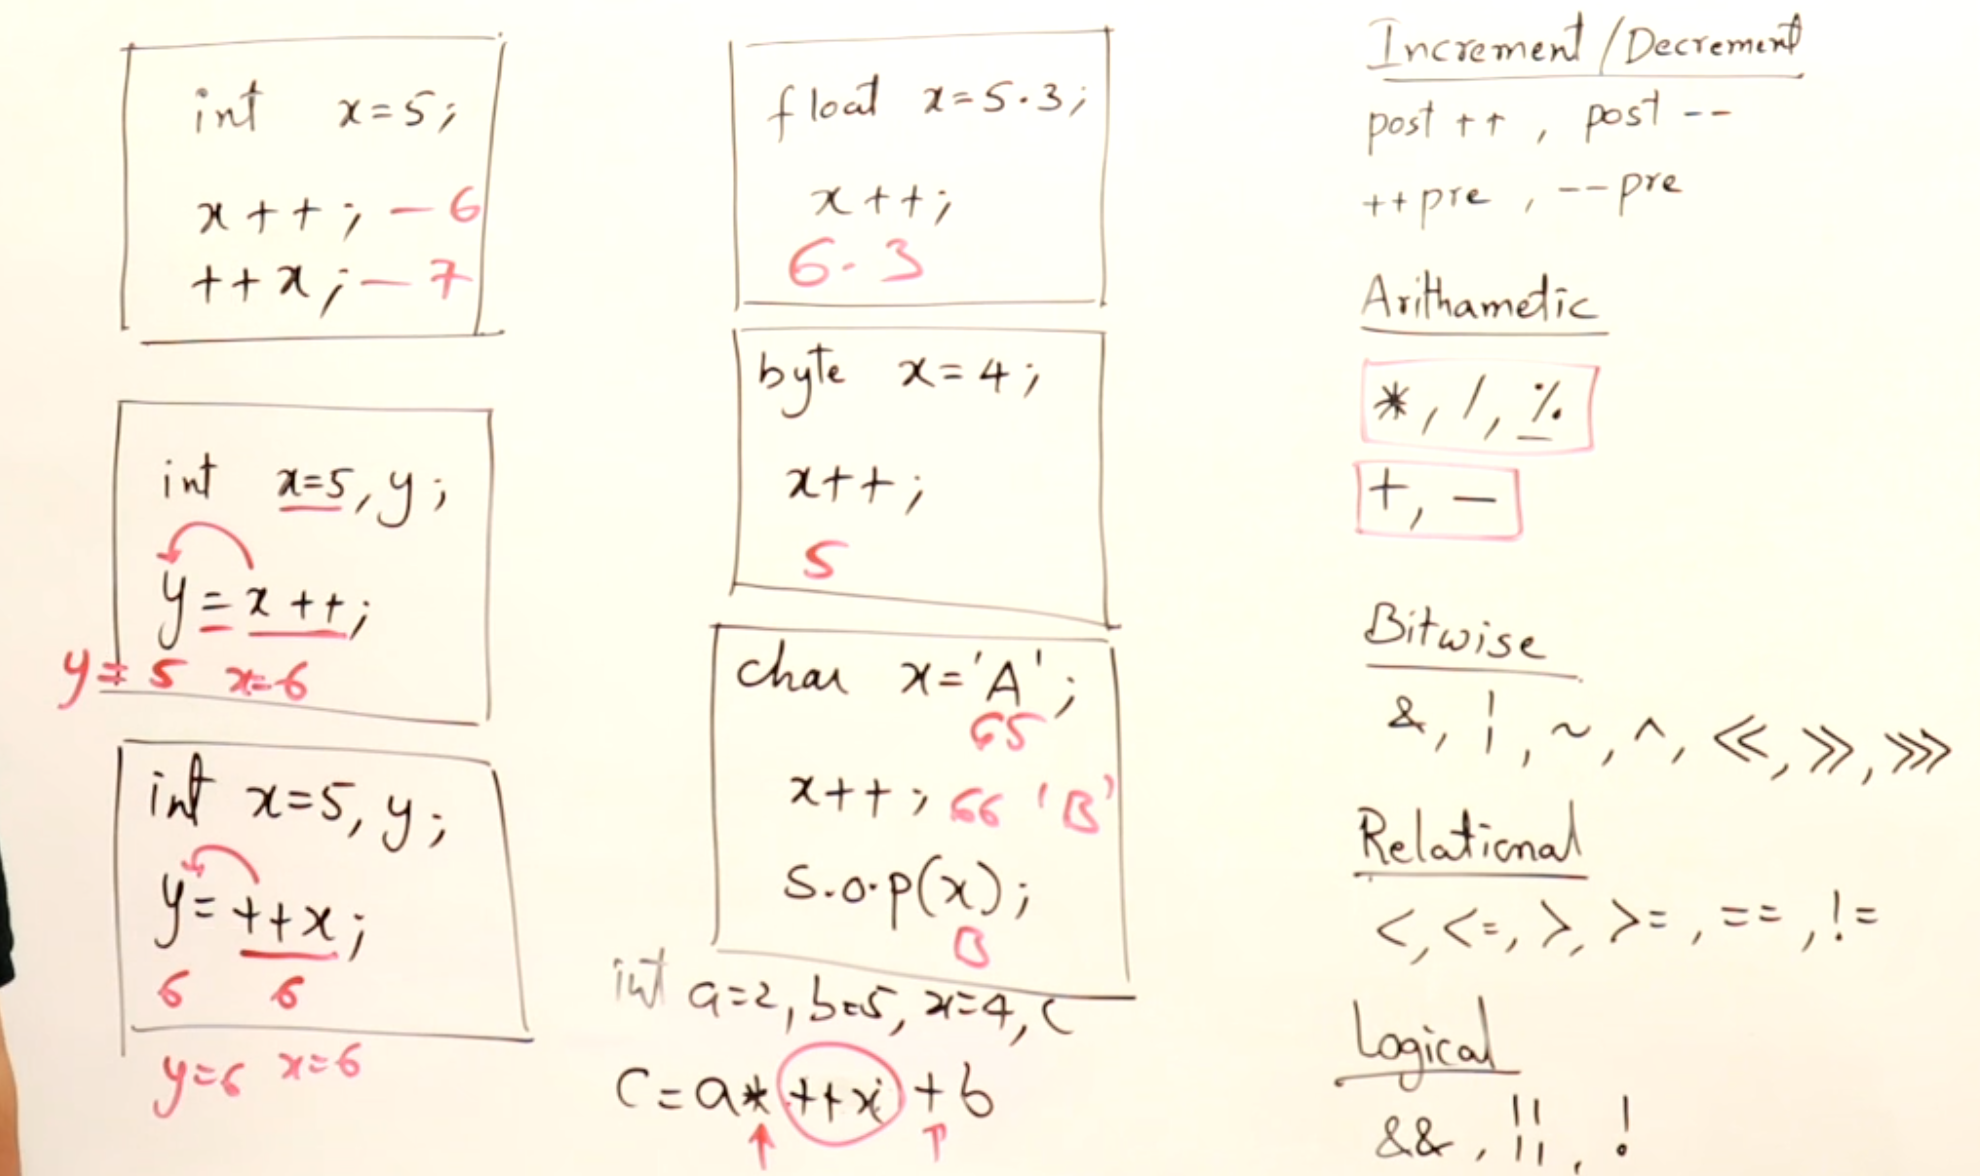 int x=5;
x++; — 6
++x; — 7
int x=5, y;
y = x++;
y = 5 x=6
int x=5, y;
y = ++x;
6 6
y=6 x=6
float x=5.3;
x++;
6.3
byte x=4;
x++;
5
char x='A';
65
x++; 66 'B'
S.o.p(x);
B
int a=2, b=5, x=4, c
C=a* ++x + b
Increment/Decrement
post ++, post --
++pre, --pre
Arithametic
*, /, %
+, −
Bitwise
&, |, ~, ^, <<, >>, >>>
Relational
<, <=, >, >=, ==, !=
Logical
&&, ||, !